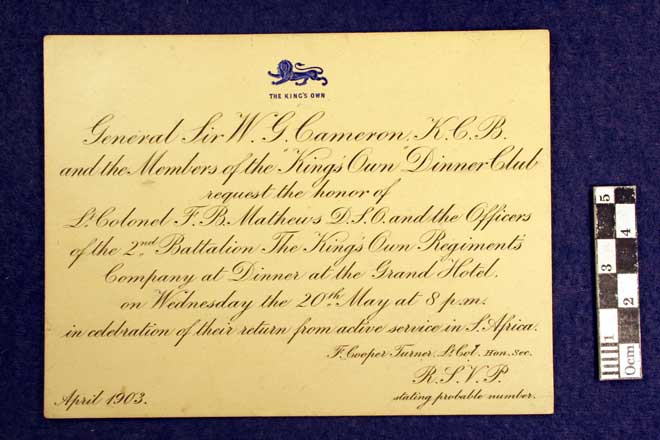 THE KING'S OWN
General Sir W. G. Cameron, K.C.B.
and the Members of the "King's Own" Dinner Club
request the honor of
Lt. Colonel F. B. Mathews D.S.O. and the Officers
of the 2nd Battalion The King's Own Regiment's
Company at Dinner at the Grand Hotel.
on Wednesday the 20th May at 8 p.m.
in celebration of their return from active service in S. Africa.
F. Cooper Turner, Lt. Col. Hon. Sec.
R.S.V.P.
April 1903.
stating probable number.
0cm 1 2 3 4 5